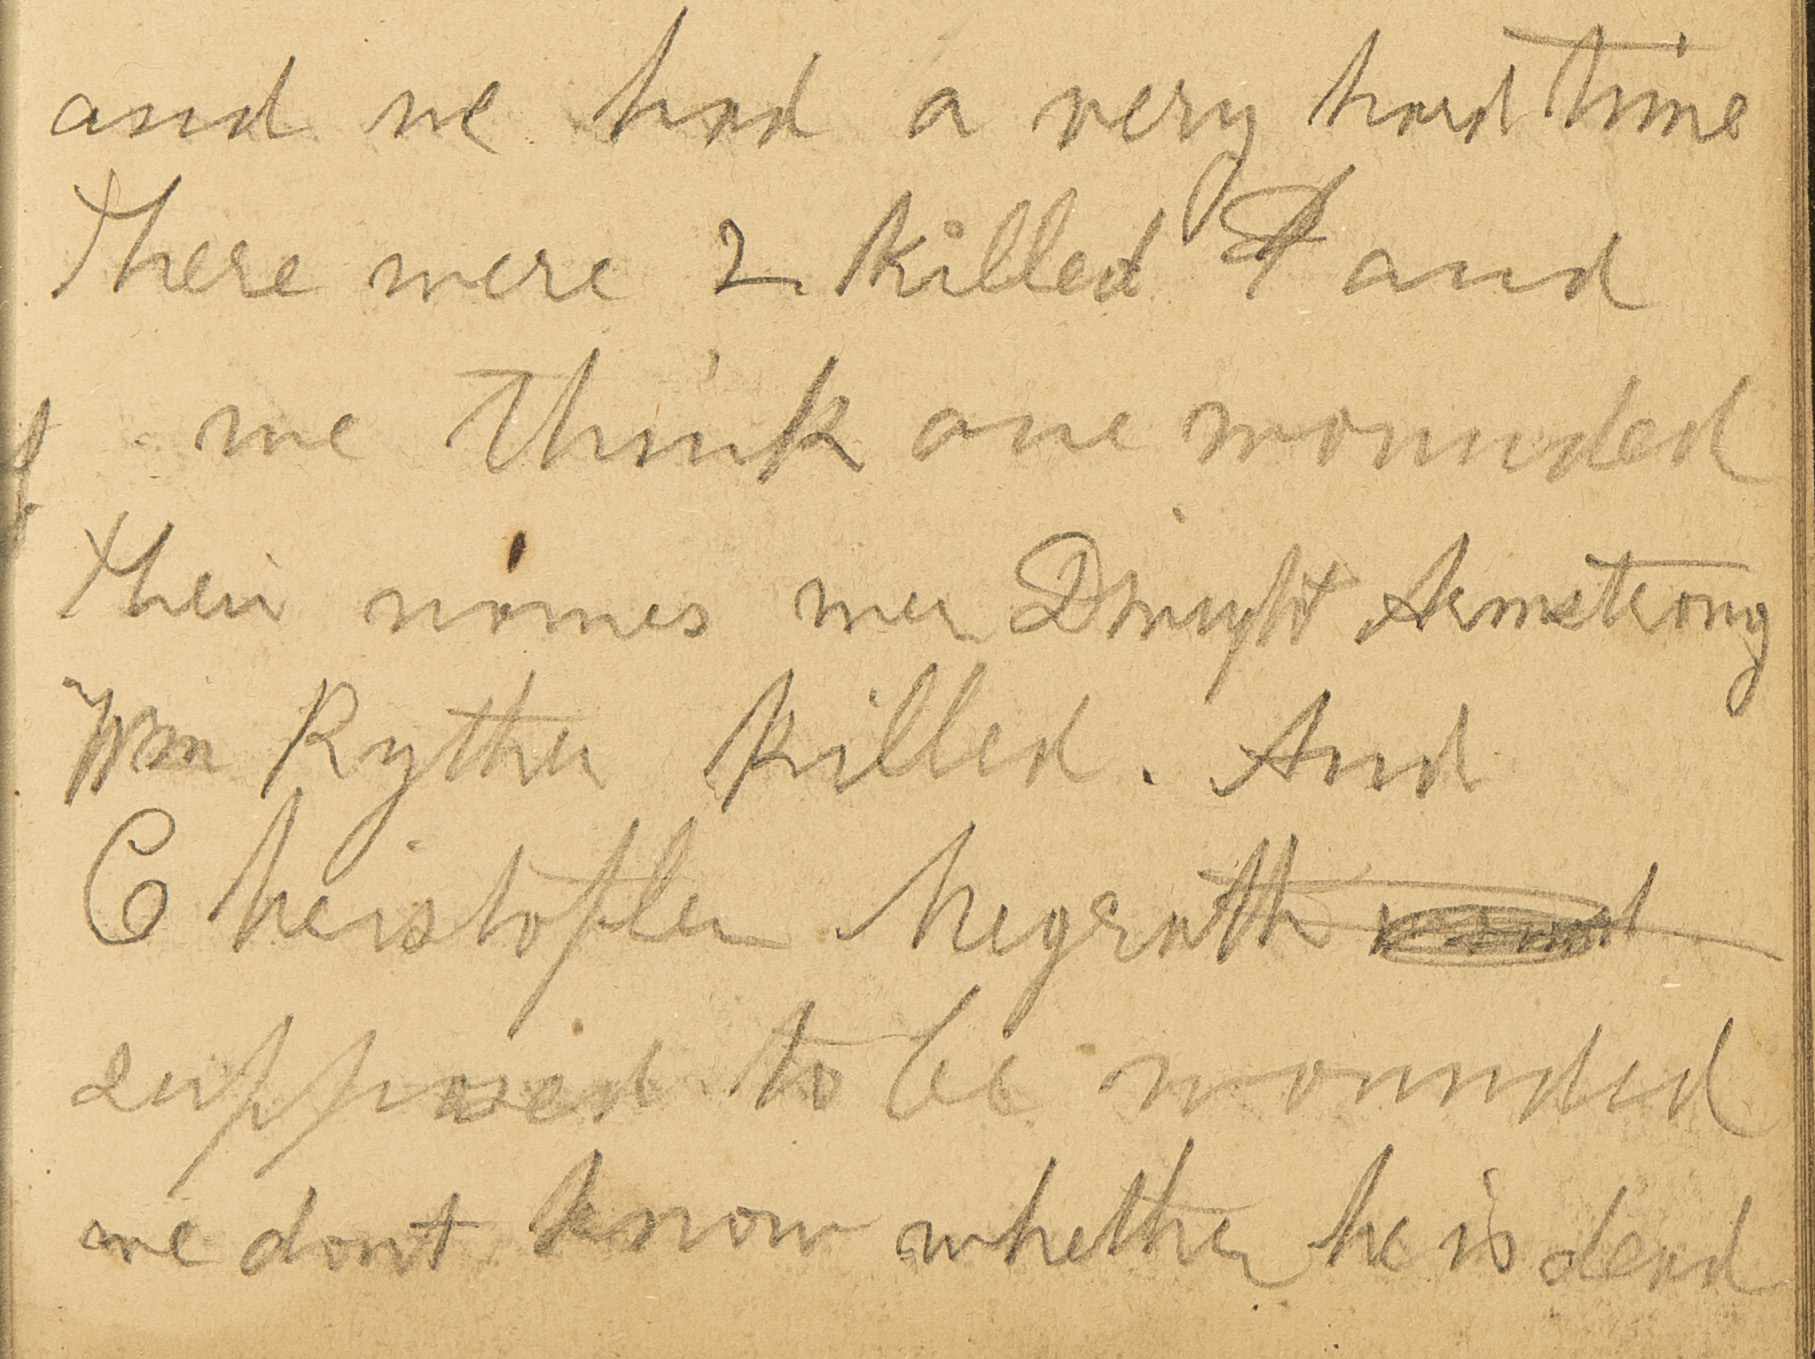 and we had a very hard time
There were 2 killed and
we think one wounded
their names wer Dwight Armstrong
Wm Ryther killed. And
Christopher Megrath
supposed to be wounded
we dont know whether he is dead